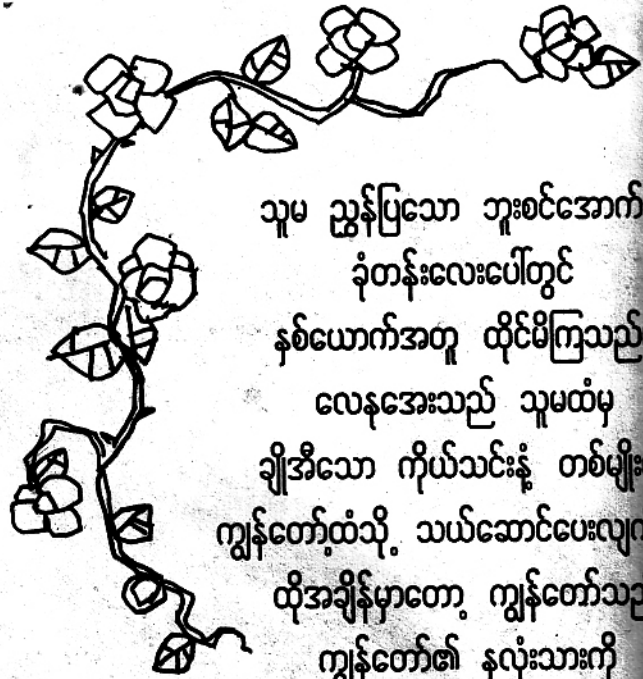 သူမ ညွှန်ပြသော ဘူးစင်အောက်
ခုံတန်းလေးပေါ်တွင်
နှစ်ယောက်အတူ ထိုင်မိကြသည်
လေနုအေးသည် သူမထံမှ
ချိုအီသော ကိုယ်သင်းနံ့ တစ်မျိုး
ကျွန်တော့်ထံသို့ သယ်ဆောင်ပေး
ထိုအချိန်မှာတော့
ကျွန်တော်၏ နှလုံးသားကို